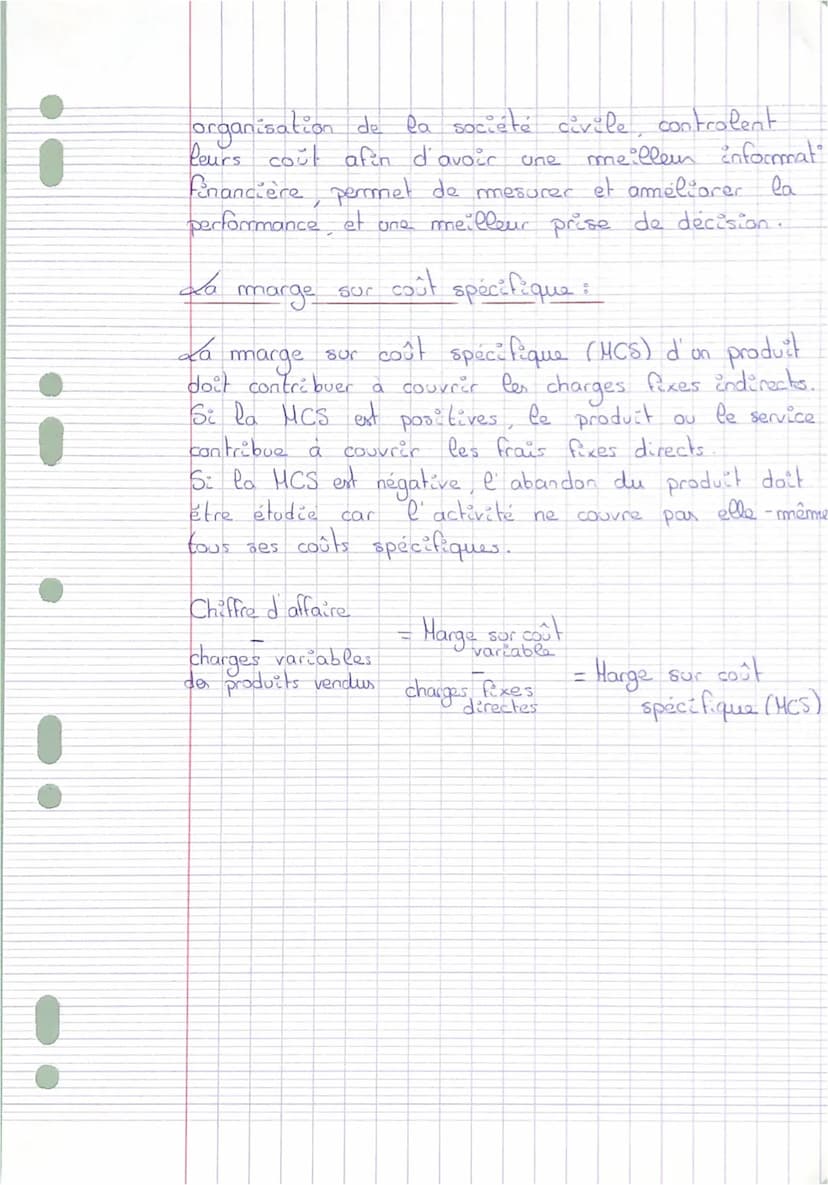 organisation de la société civile, controlent
leurs coût afin d'avoir une meilleur informat°
financière, permet de mesurer et améliorer la
performance, et une meilleur prise de décision.
La marge sur coût spécifique :
La marge sur coût spécifique (MCS) d'un produit
doit contribuer à couvrir les charges fixes indirects.
Si la MCS est positives, le produit ou le service
contribue à couvrir les frais fixes directs.
Si la MCS est négative, l'abandon du produit doit
être étudie car l'activité ne couvre pas elle-même
tous ses coûts spécifiques.
Chiffre d'affaire
-
charges variables
des produits vendus
= Marge sur coût
variable
-
charges fixes
directes
= Marge sur coût
spécifique (MCS)